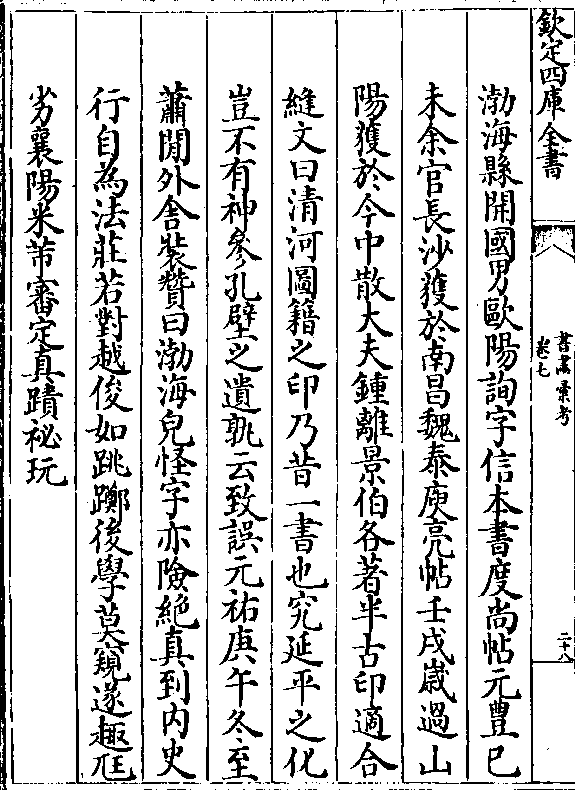 欽定四庫全書
書畫彙考
卷七
二十八
渤海縣開國男歐陽詢字信本書度尚帖元豐已
未余官長沙獲於南昌魏泰庾亮帖壬戌歲過山
陽獲於今中散大夫鍾離景伯各著半古印適合
縫文曰清河圖籍之印乃昔一書也究延平之化
豈不有神參孔壁之遺孰云致誤元祐庚午冬至
蕭閒外舍裝贊曰渤海皃怪字亦險絶真到内史
行自為法莊若對越俊如跳躑後學莫窺遂趣尫
劣襄陽米芾審定真蹟祕玩